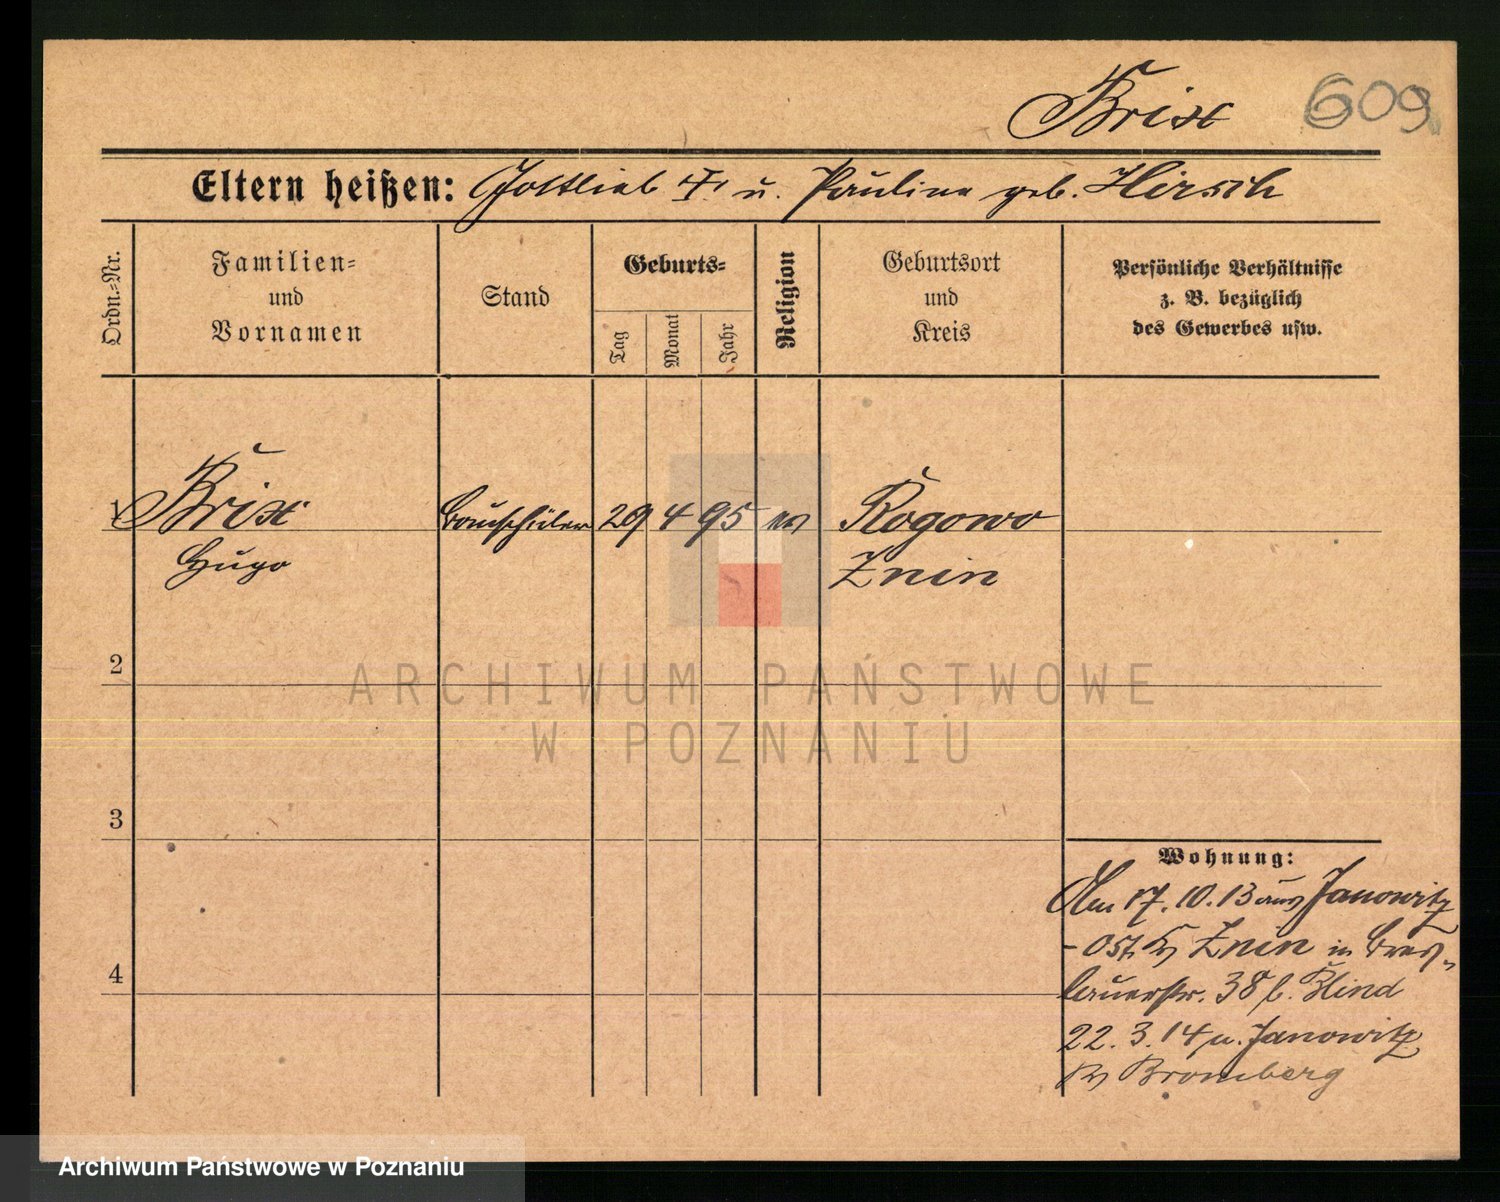 Brix 609
Eltern heißen: Gottlieb † u. Pauline geb. Hirsch
Ordn.-Nr.
Familien-
und
Vornamen
Stand
Geburts-
Tag
Monat
Jahr
Religion
Geburtsort
und
Kreis
Persönliche Verhältnisse
z. B. bezüglich
des Gewerbes usw.
1 Brix Bauschüler 29 4 95 ev Rogowo
Hugo Znin
2
ARCHIWUM PAŃSTWOWE
W POZNANIU
3
Wohnung:
Am 17. 10. 13 aus Janowitz
- Ost Kr Znin in Bres-
lauerstr. 38 b. Blind
4
22. 3. 14 n. Janowitz
Kr Bromberg
Archiwum Państwowe w Poznaniu